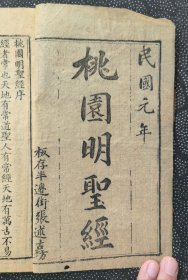 民國元年
桃園明聖經
板存半邊街張述古房
桃園明聖經序
經者常也天地有常道聖人有常經天地有萬古不易